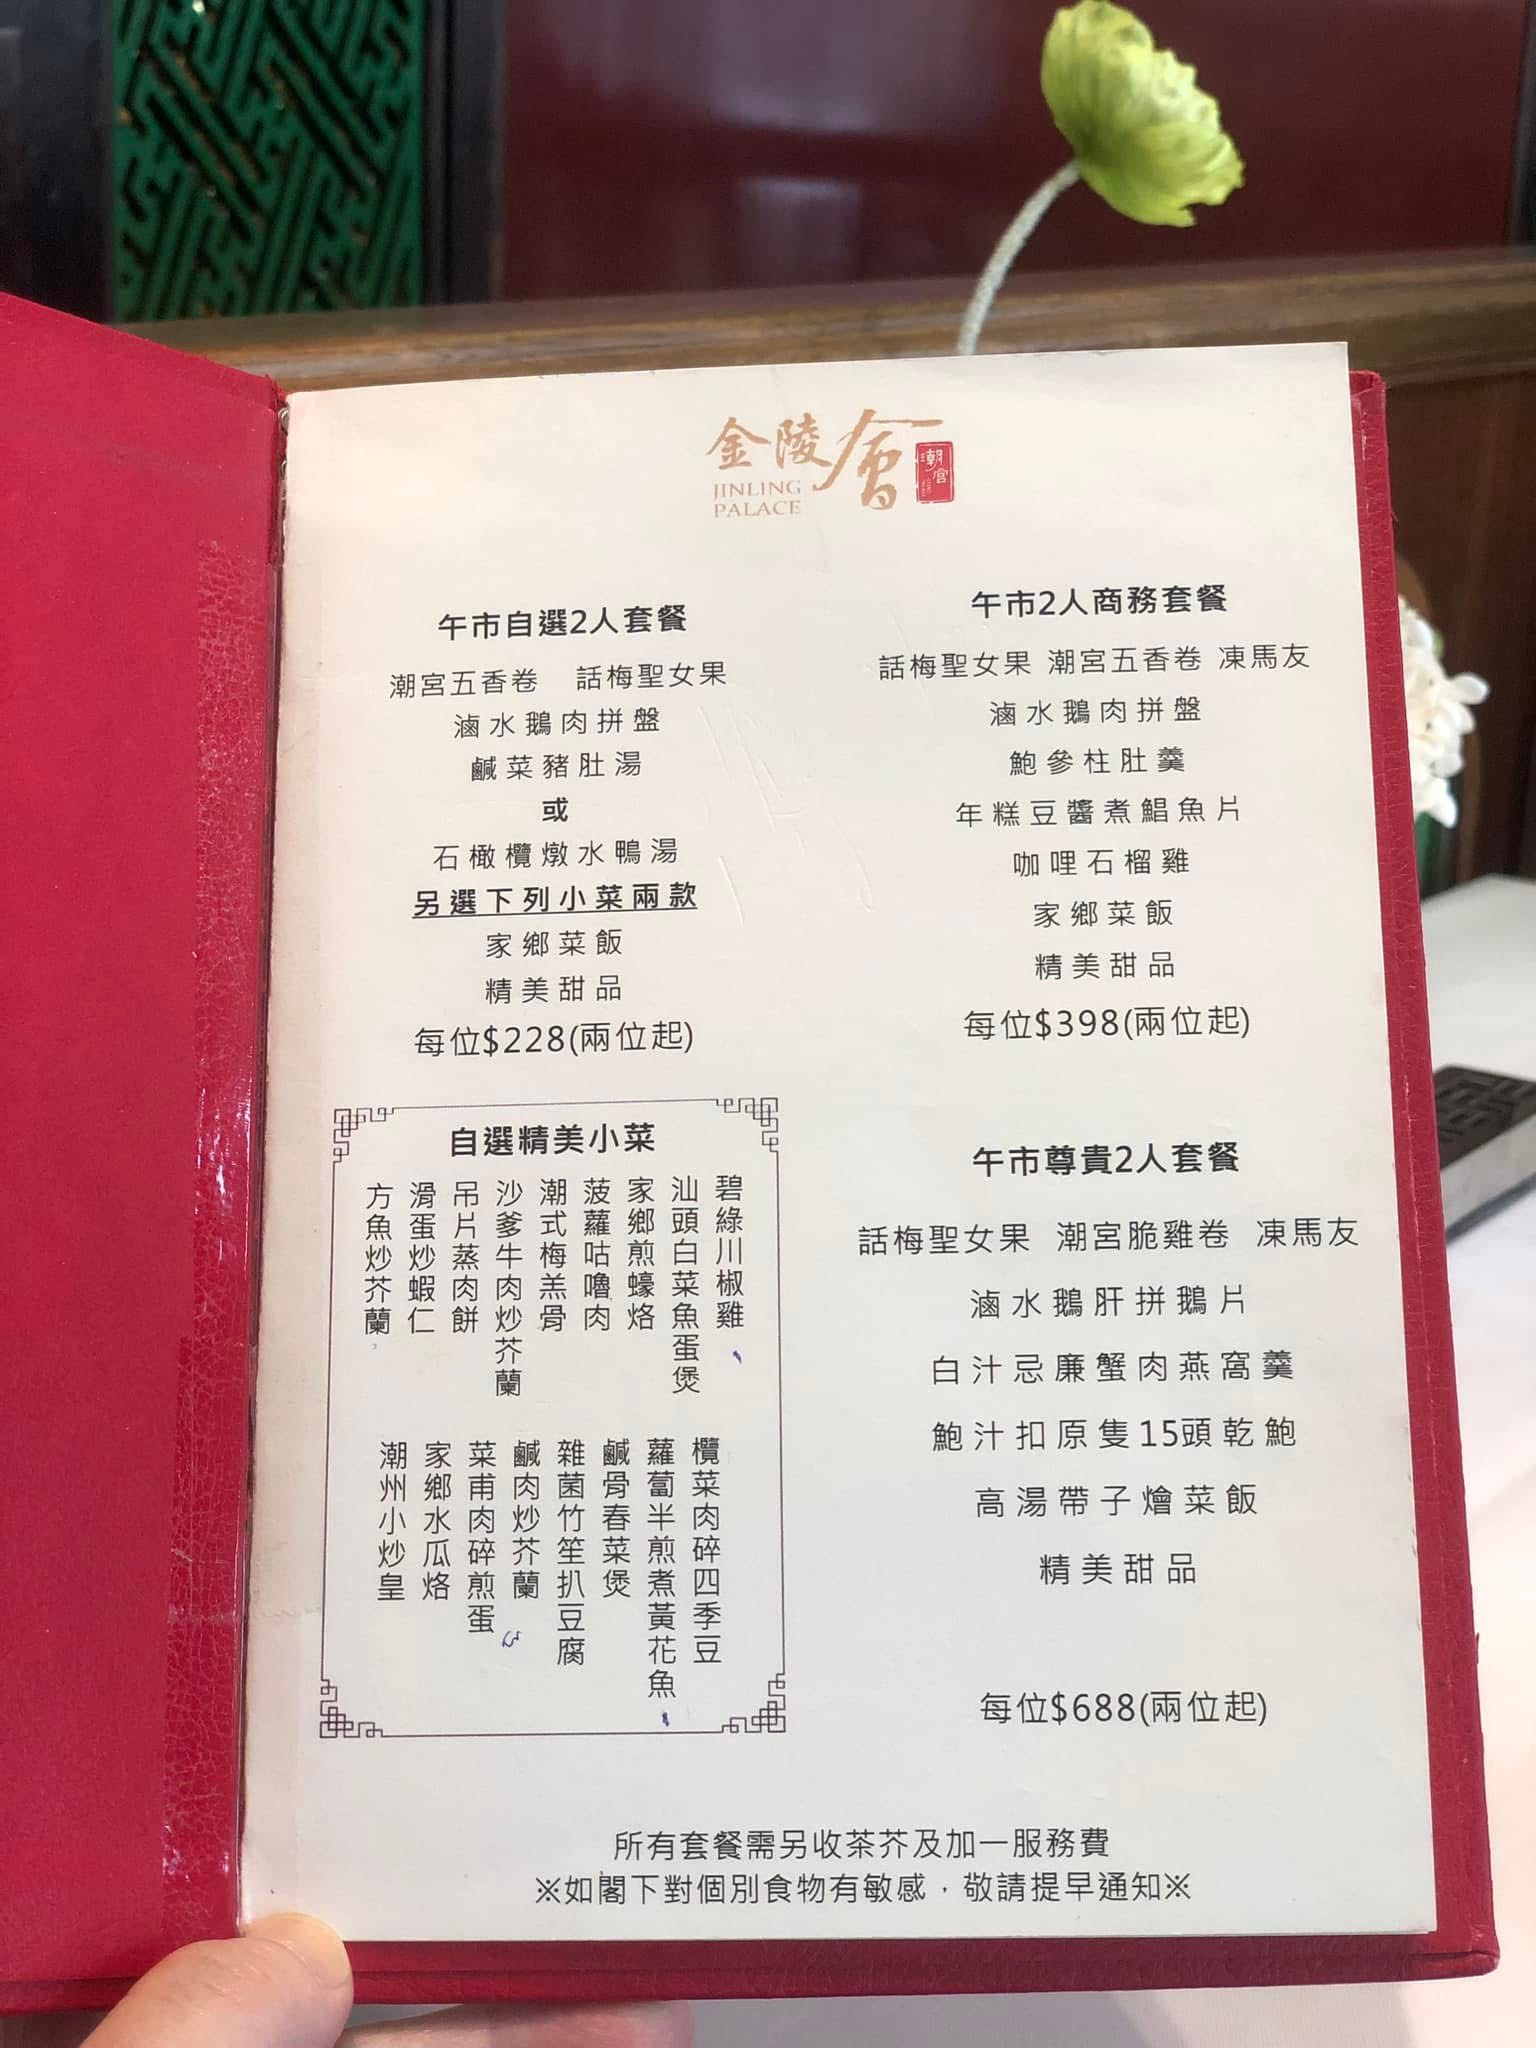 金陵會
潮宮
JINLING
PALACE
午市自選2人套餐
潮宮五香卷 話梅聖女果
滷水鵝肉拼盤
鹹菜豬肚湯
或
石橄欖燉水鴨湯
另選下列小菜兩款
家鄉菜飯
精美甜品
每位$228(兩位起)
午市2人商務套餐
話梅聖女果 潮宮五香卷 凍馬友
滷水鵝肉拼盤
鮑參柱肚羹
年糕豆醬煮鯧魚片
咖哩石榴雞
家鄉菜飯
精美甜品
每位$398(兩位起)
自選精美小菜
碧綠川椒雞
汕頭白菜魚蛋煲
家鄉煎蠔烙
菠蘿咕嚕肉
潮式梅羔骨
沙爹牛肉炒芥蘭
吊片蒸肉餅
滑蛋炒蝦仁
方魚炒芥蘭
欖菜肉碎四季豆
蘿蔔半煎煮黃花魚
鹹骨春菜煲
雜菌竹笙扒豆腐
鹹肉炒芥蘭
菜甫肉碎煎蛋
家鄉水瓜烙
潮州小炒皇
午市尊貴2人套餐
話梅聖女果 潮宮脆雞卷 凍馬友
滷水鵝肝拼鵝片
白汁忌廉蟹肉燕窩羹
鮑汁扣原隻15頭乾鮑
高湯帶子燴菜飯
精美甜品
每位$688(兩位起)
所有套餐需另收茶芥及加一服務費
※如閣下對個別食物有敏感，敬請提早通知※